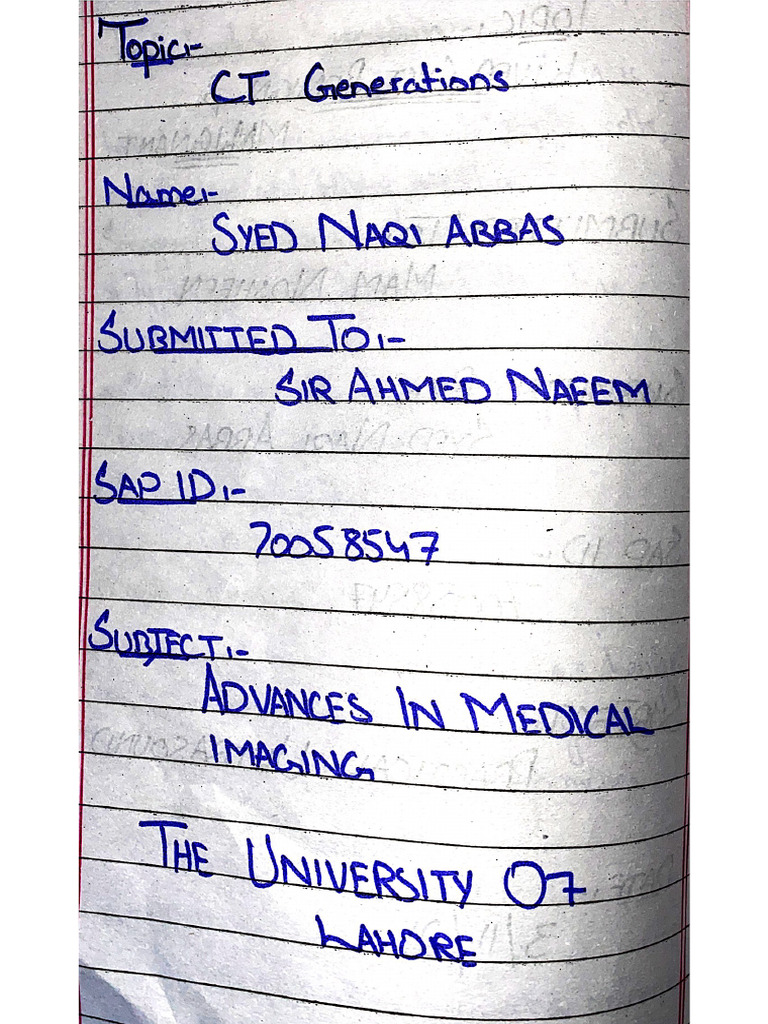 Topic:-
CT Generations
Name:-
SYED NAQI ABBAS
SUBMITTED TO:-
SIR AHMED NAEEM
SAP ID:-
70058547
SUBJECT:-
ADVANCES IN MEDICAL
IMAGING
THE UNIVERSITY OF
LAHORE